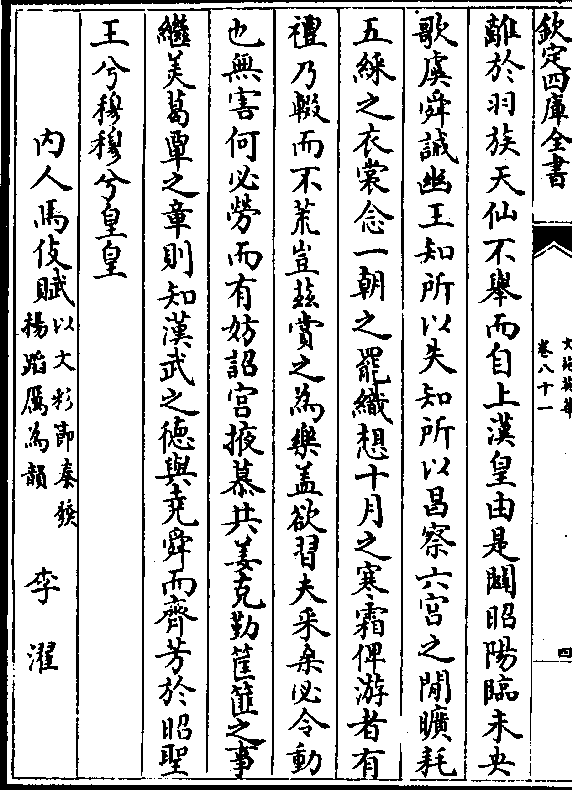 欽定四庫全書
文苑英華
卷八十一
四
離於羽族天仙不舉而自上漢皇由是闢昭陽臨未央
歌虞舜誡幽王知所以失知所以昌察六宫之閒曠耗
五綵之衣裳念一朝之罷織想十月之寒霜俾游者有
禮乃輟而不荒豈兹賞之為樂盖欲習夫采桑必令動
也無害何必勞而有妨詔宫掖慕共姜克勤筐篚之事
繼美葛覃之章則知漢武之德與堯舜而齊芳於昭聖
王兮穆穆兮皇皇
内人馬伎賦以文彩節奏發揚蹈厲為韻 李濯